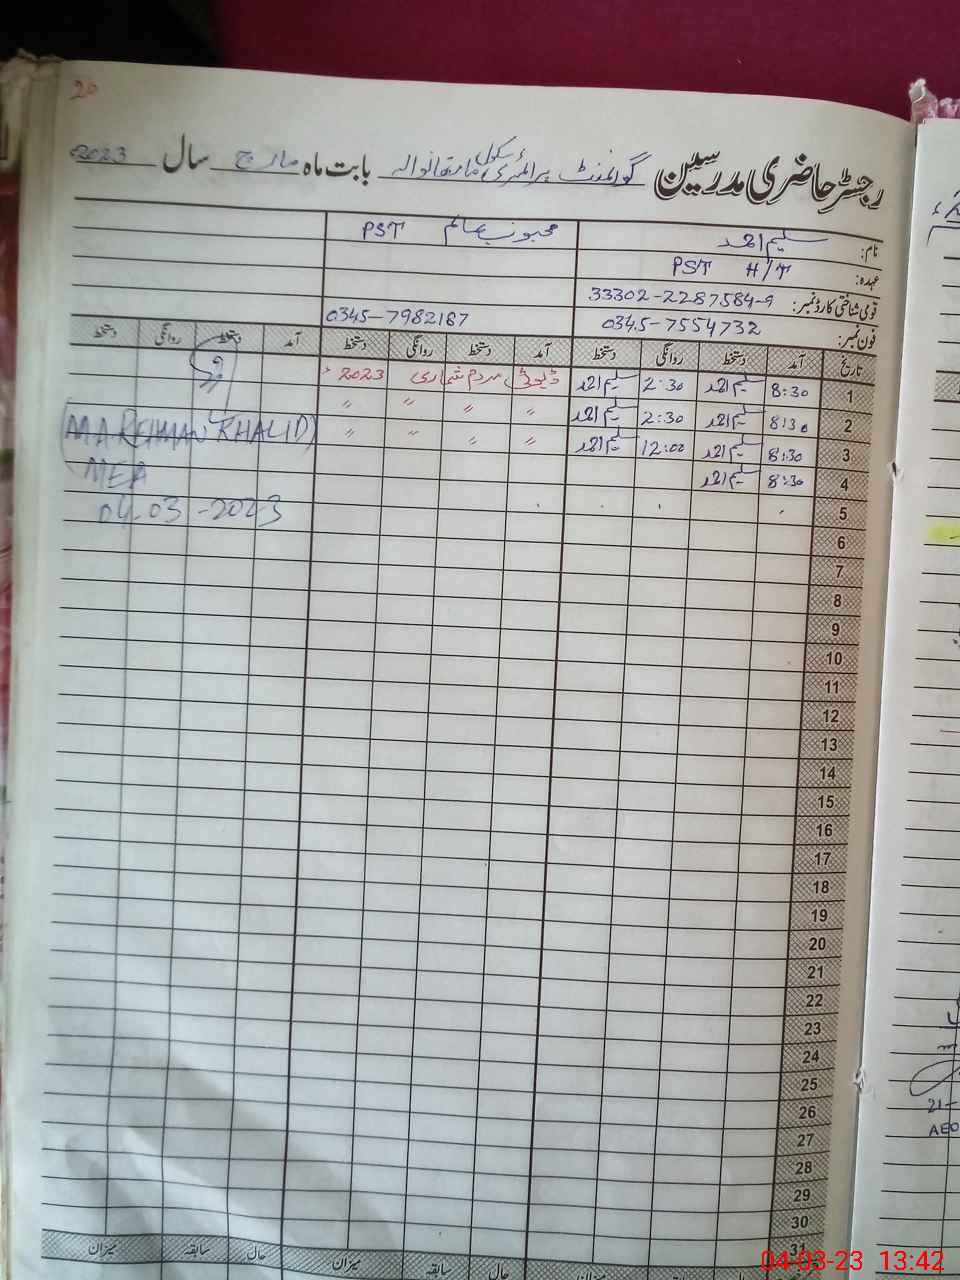 20
رجسٹر حاضری مدرسین گورنمنٹ پرائمری سکول بابت ماہ مارچ سال 2023
نام: سلیم احمد محبوب عالم PST
عہدہ: PST H/T
قومی شناختی کارڈ نمبر: 33302-2287584-9
فون نمبر: 0345-7554732 0345-7982187
تاریخ آمد دستخط روانگی دستخط آمد دستخط روانگی دستخط آمد دستخط روانگی دستخط
1 8:30 سلیم احمد 2:30 سلیم احمد ڈیوٹی مردم شماری 2023
2 8:30 سلیم احمد 2:30 سلیم احمد " " " "
3 8:30 سلیم احمد 12:00 سلیم احمد " " " "
4 8:30 سلیم احمد
(MA REHMAN KHALID)
MEA
04-03-2023
5
6
7
8
9
10
11
12
13
14
15
16
17
18
19
20
21
22
23
24
25
26
27
28
29
30
31
حال سابقہ میزان حال سابقہ میزان
21-
AEO
04-03-23 13:42